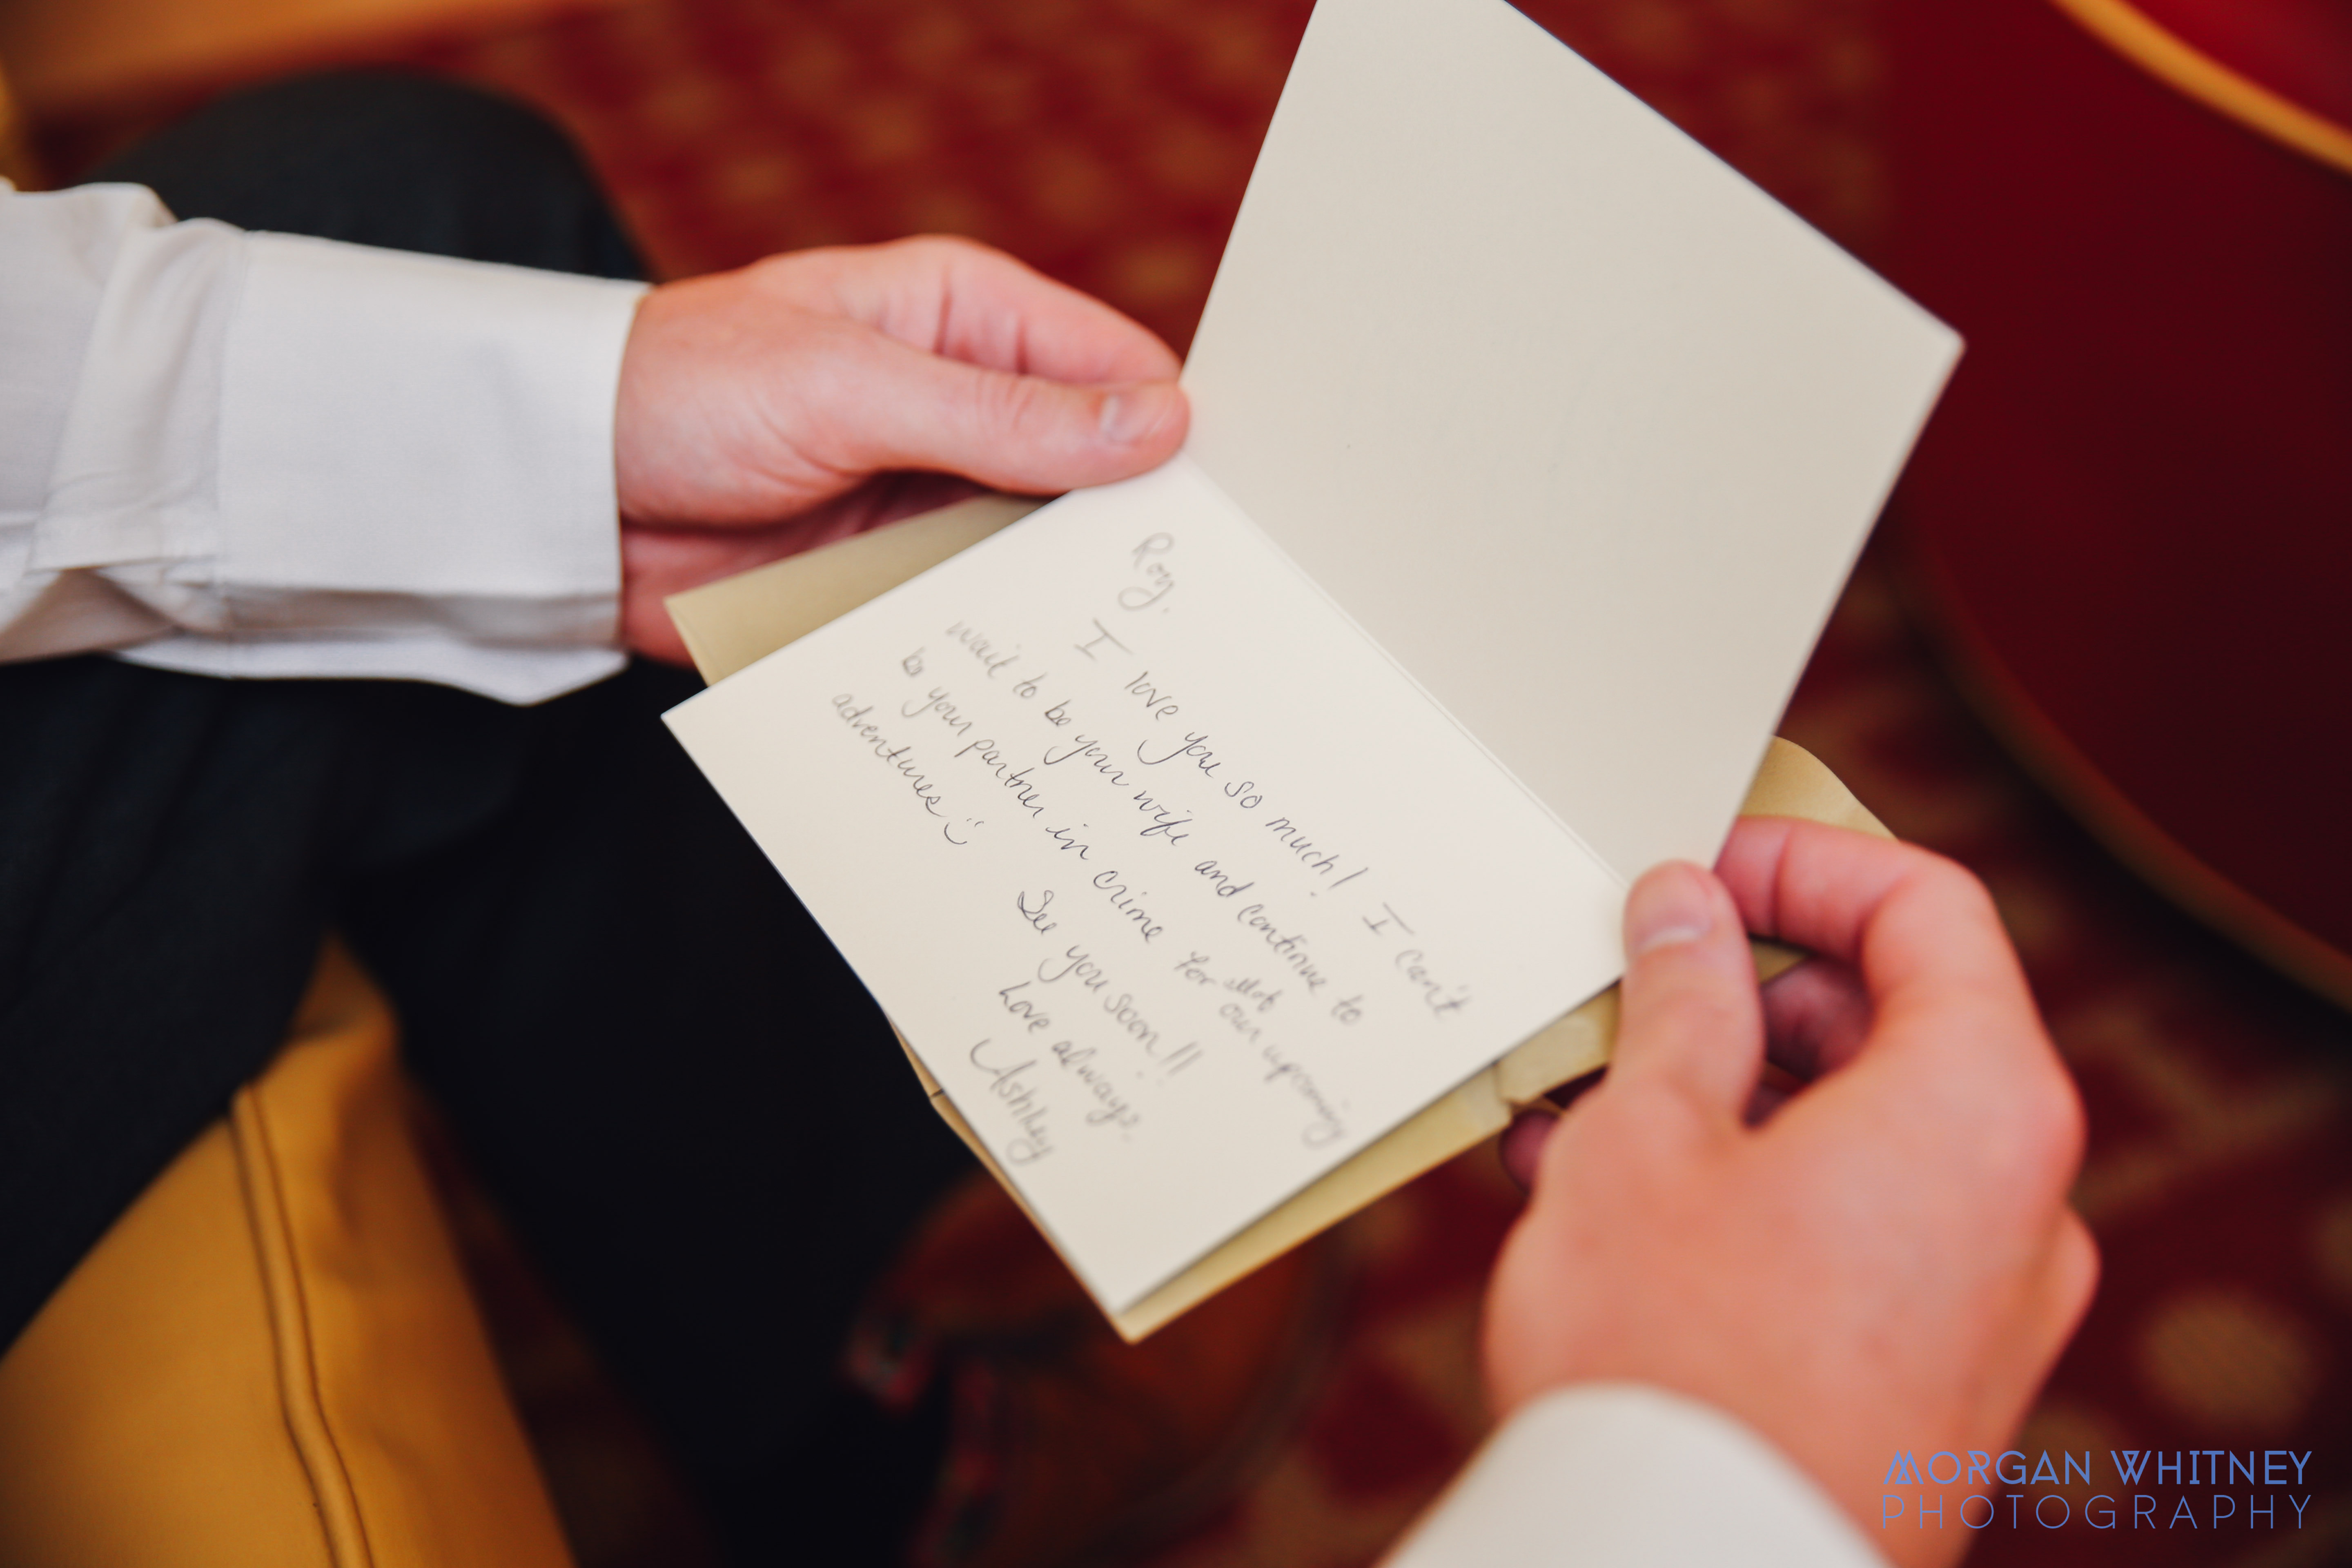 Roy,
I love you so much! I can't
wait to be your wife and continue to
be your partner in crime for our upcoming
adventures :)
See you soon!!
Love always,
Ashley
MORGAN WHITNEY
PHOTOGRAPHY